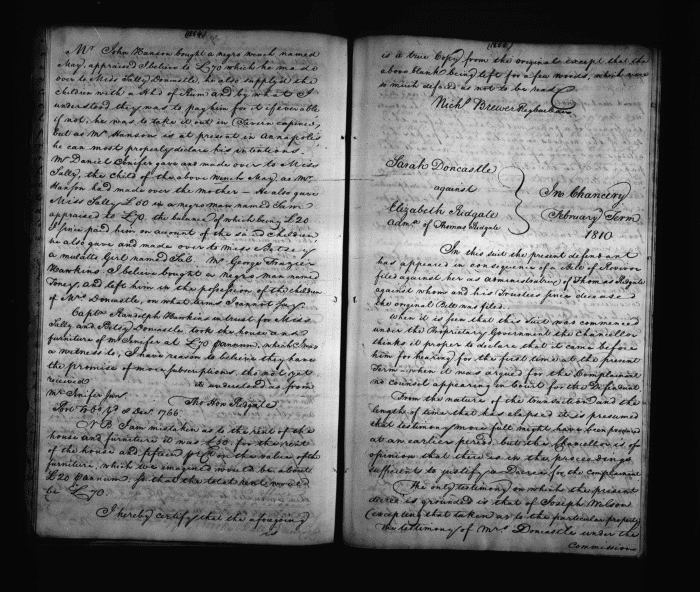 Mr John Hanson bought a negro wench named
May, appraised I believe to £70 which he made
over to Miss Sally Doncastle, he also supply'd the
children with a Hhd of Rum and by what I
understand they was to pay him for it if ever able
if not, he was to take it out in Tavern expences,
but as Mr Hanson is at present in Annapolis
he can most properly declare his intentions.
Mr Daniel Jenifer gave and made over to Miss
Sally, the child of the above wench May, as Mr
Hanson had made over the mother — He also gave
Miss Sally £50 in a negro man named Sam
appraised to £70, the balance of which being £20
I since paid him on account of the said children
he also gave and made over to Miss Betsey
a mulatto Girl named Lib. Mr George Frazier
Hawkins I believe bought a negro man named
Toney, and left him in the possession of the children
of Mrs Doncastle, on what terms I cannot say.
Capt. Randolph Hawkins in trust for Miss
Sally and Patsy Doncastle, took the house and
furniture of Mr Jenifer at £70 p annum, which I was
a witness to, I have reason to believe they have
the promise of more subscriptions tho not yet
received
Mr Jenifer Junr
Port Tobo 8 Decr 1766
Thos Hon Ridgate
NB I am mistaken as to the rent of the
house and furniture it was £50 for the rent
of the house and fifteen p Ct on the value of the
furniture, which we imagined would be about
£20 p annum, so that the total rent would
be £70.
I hereby certify that the aforegoing
is
is a true Copy from the original except that the
above blank being left for a few words, which were
so much defaced as not to be read
Nichs Brewer Reg
Sarah Doncastle
against
Elizabeth Ridgate
admx of Thomas Ridgate
In Chancery
February Term
1810
In this suit the present defendant
has appeared in consequence of a Bill of Revivor
filed against her as administratrix of Thomas Ridgate
against whom and his Trustees since deceased
the original Bill was filed.
When it is seen that this Suit was commenced
under the Proprietary Government the Chancellor
thinks it proper to declare that it came before
him for hearing for the first time at the present
Term when it was argued for the Complainant
no counsel appearing in Court for the Defendant
From the nature of the transaction and the
length of time that has elapsed it is presumed
that testimony more full might have been procured
at an earlier period, but the Chancellor is of
opinion that there is in the proceedings
sufficient to justify a Decree for the complainant
The only testimony on which the present
decree is grounded is that of Joseph Wilson
(excepting that taken as to the particular property)
the testimony of Mrs Doncastle under the
Commission